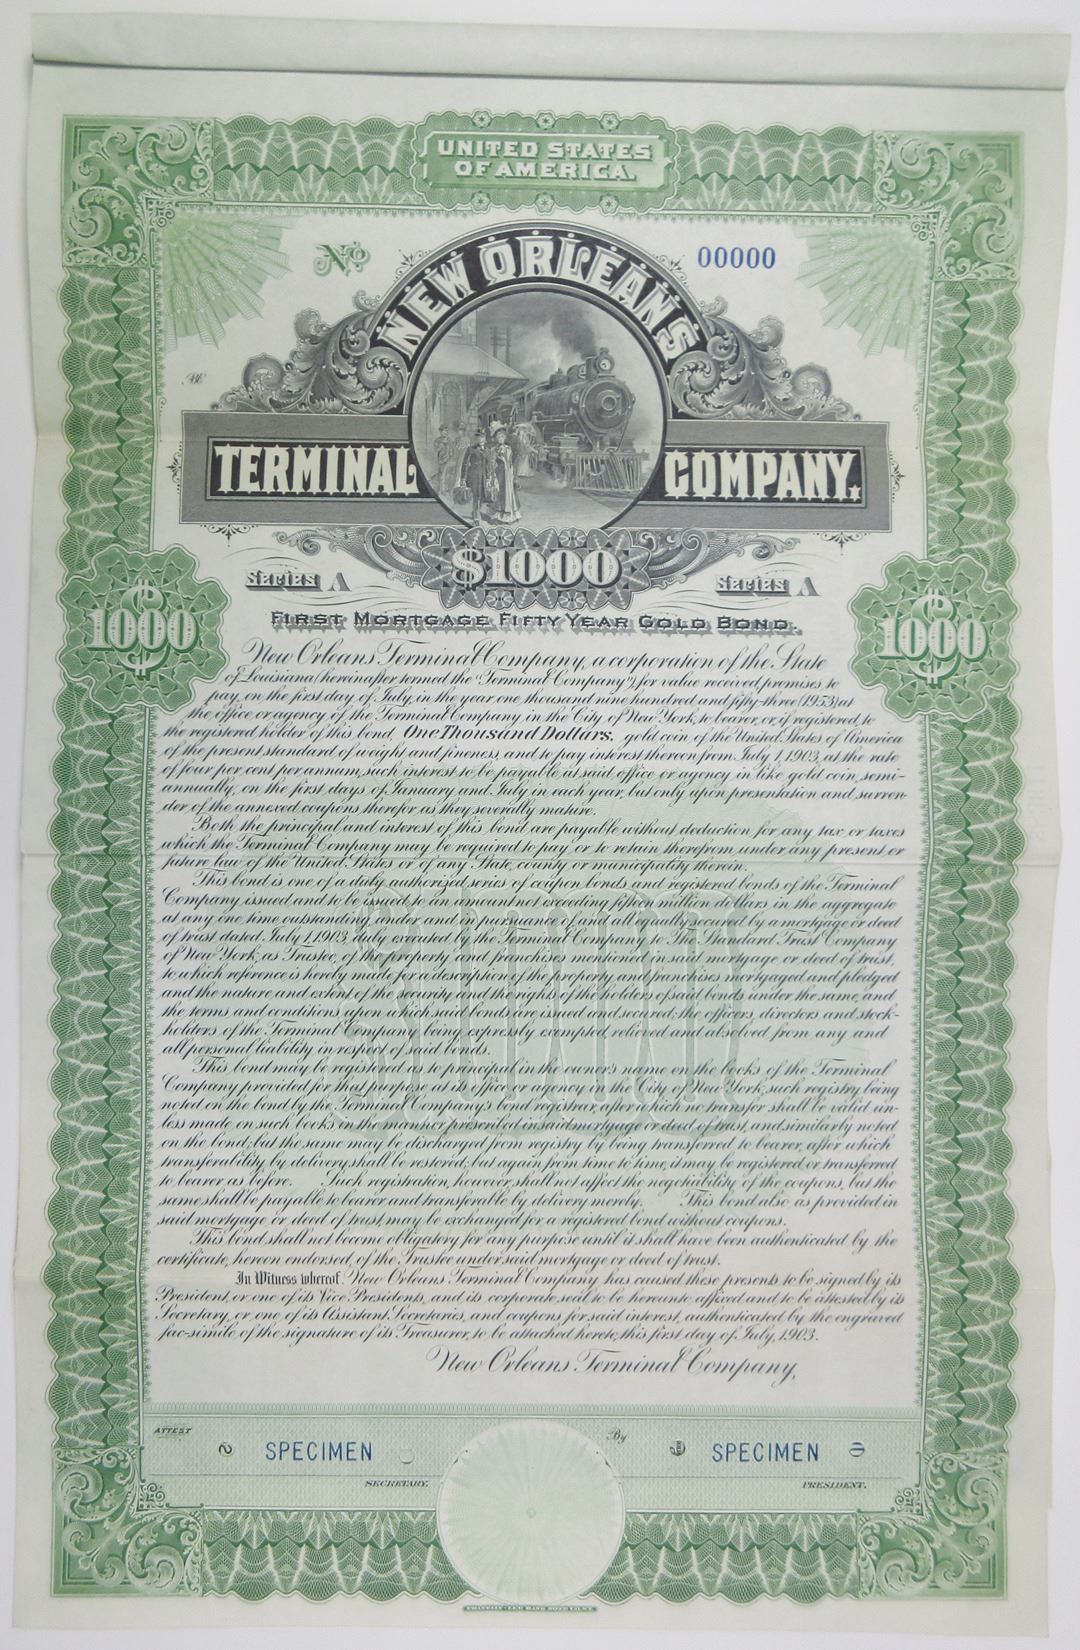 UNITED STATES
OF AMERICA.
No
00000
NEW ORLEANS
TERMINAL COMPANY.
$1000
SERIES A
SERIES A
$1000
$1000
FIRST MORTGAGE FIFTY YEAR GOLD BOND.
New Orleans Terminal Company, a corporation of the State
of Louisiana (hereinafter termed the "Terminal Company"), for value received, promises to
pay, on the first day of July, in the year one thousand nine hundred and fifty-three (1953), at
the office or agency of the Terminal Company in the City of New York, to bearer, or, if registered, to
the registered holder of this bond, One Thousand Dollars, gold coin of the United States of America
of the present standard of weight and fineness, and to pay interest thereon from July 1, 1903, at the rate
of four per cent per annum, such interest to be payable at said office or agency in like gold coin, semi-
annually, on the first days of January and July in each year, but only upon presentation and surren-
der of the annexed coupons therefor as they severally mature.
Both the principal and interest of this bond are payable without deduction for any tax or taxes
which the Terminal Company may be required to pay or to retain therefrom under any present or
future law of the United States or of any State, county or municipality therein.
This bond is one of a duly authorized series of coupon bonds and registered bonds of the Terminal
Company issued and to be issued to an amount not exceeding fifteen million dollars in the aggregate
at any one time outstanding, under and in pursuance of and all equally secured by a mortgage or deed
of trust dated July 1, 1903, duly executed by the Terminal Company to The Standard Trust Company
of New York, as Trustee, of the property and franchises mentioned in said mortgage or deed of trust,
to which reference is hereby made for a description of the property and franchises mortgaged and pledged
and the nature and extent of the security and the rights of the holders of said bonds under the same, and
the terms and conditions upon which said bonds are issued and secured; the officers, directors and stock-
holders of the Terminal Company being expressly exempted, relieved and absolved from any and
all personal liability in respect of said bonds.
This bond may be registered as to principal in the owner's name on the books of the Terminal
Company provided for that purpose at its office or agency in the City of New York, such registry being
noted on the bond by the Terminal Company's bond registrar, after which no transfer shall be valid un-
less made on such books in the manner prescribed in said mortgage or deed of trust, and similarly noted
on the bond; but the same may be discharged from registry by being transferred to bearer, after which
transferability by delivery shall be restored; but again from time to time, it may be registered or transferred
to bearer as before. Such registration, however, shall not affect the negotiability of the coupons, but the
same shall be payable to bearer and transferable by delivery merely. This bond also as provided in
said mortgage or deed of trust, may be exchanged for a registered bond without coupons.
This bond shall not become obligatory for any purpose until it shall have been authenticated by the
certificate, hereon endorsed, of the Trustee under said mortgage or deed of trust.
In Witness whereof, New Orleans Terminal Company has caused these presents to be signed by its
President, or one of its Vice Presidents, and its corporate seal to be hereunto affixed and to be attested by its
Secretary, or one of its Assistant Secretaries, and coupons for said interest, authenticated by the engraved
fac-simile of the signature of its Treasurer, to be attached hereto, this first day of July, 1903.
New Orleans Terminal Company,
ATTEST
By
SPECIMEN
SPECIMEN
SECRETARY.
PRESIDENT.
FRANKLIN-LEE BANK NOTE CO. N.Y.